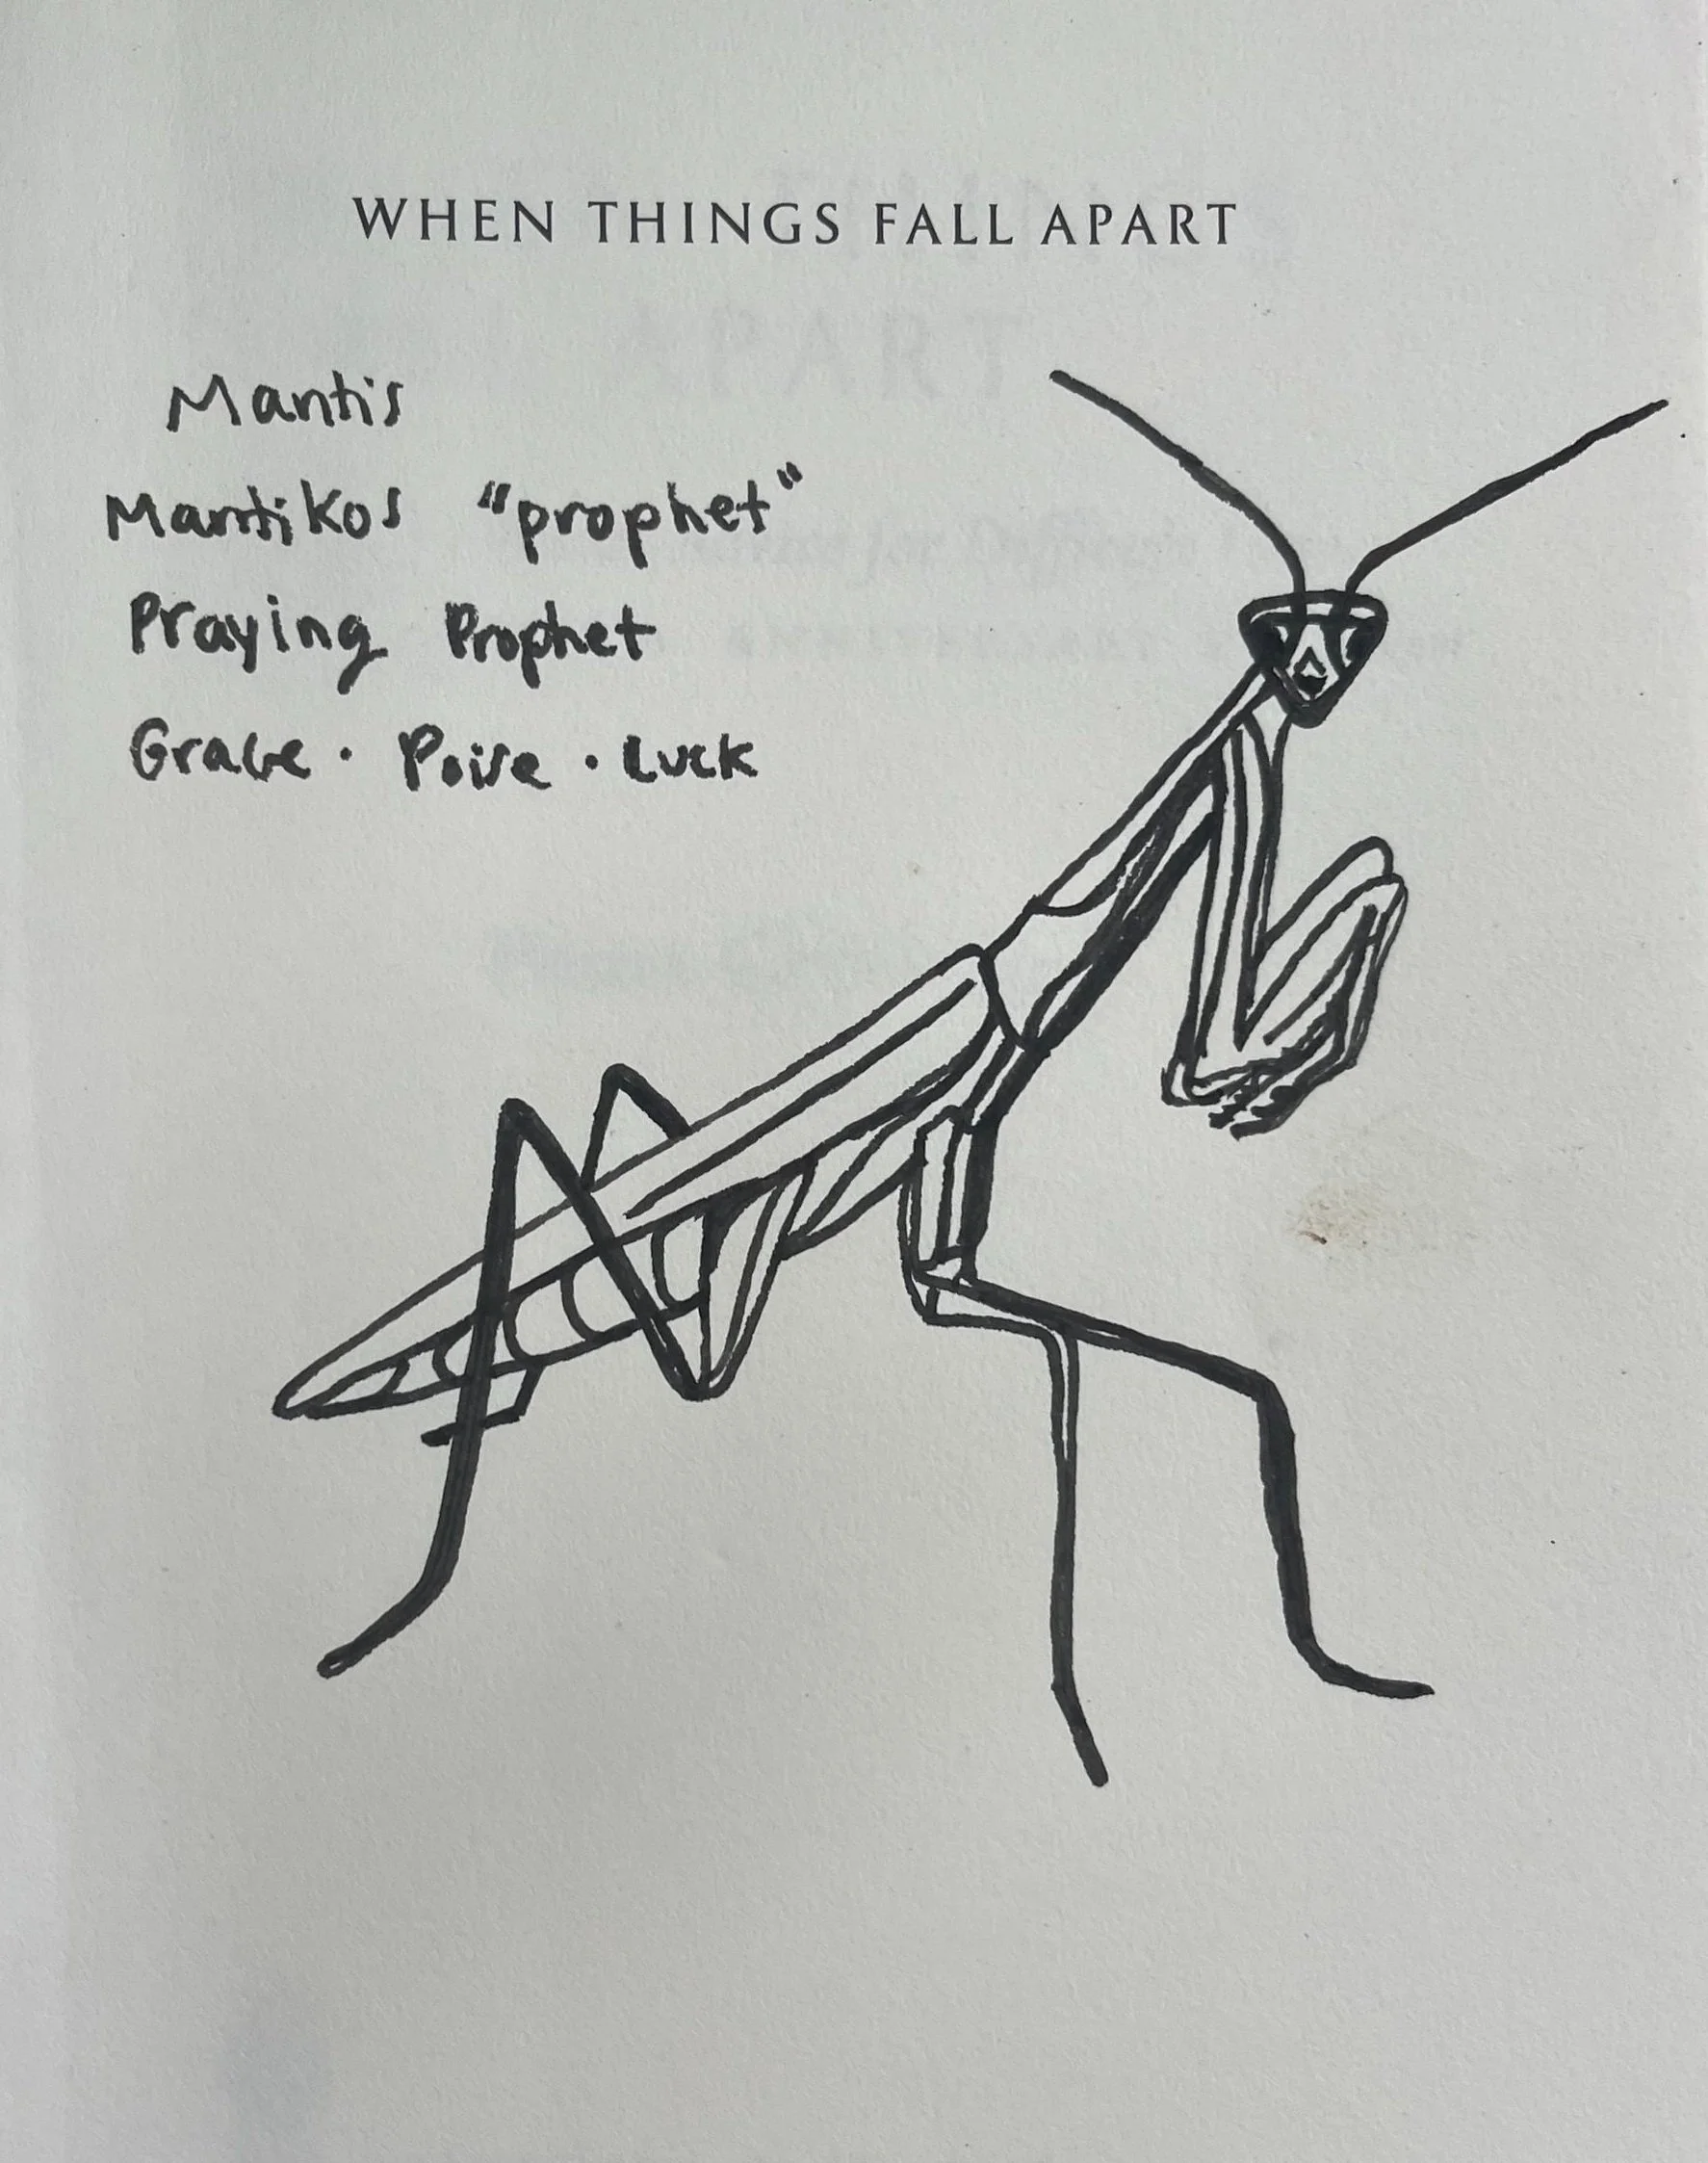 WHEN THINGS FALL APART
Mantis
Mantikos "prophet"
Praying Prophet
Grace · Poise · Luck